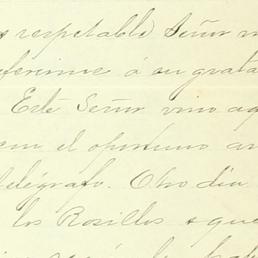 respetable Señor m
referirme á su grata
Este Señor vino aq
con el oportuno av
telégrafo. Otro dia
los Rosillos a que